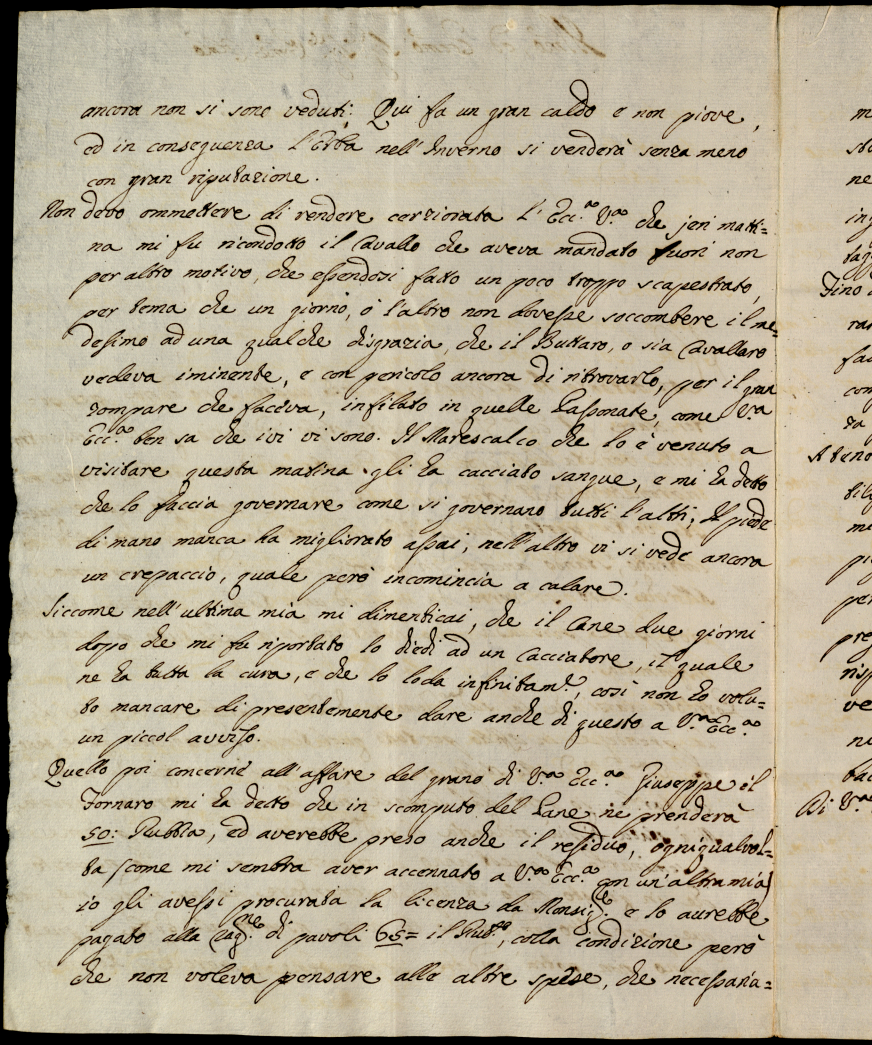 ancora non si sono veduti. Qui fa un gran caldo e non piove,
ed in conseguenza l'Erba nell'Inverno si venderà senza meno
con gran riputazione.
Non devo ommettere di rendere cerziorata l'Ecc.ª V.ª che jeri matti=
na mi fu ricondotto il Cavallo che aveva mandato fuori non
per altro motivo, che essendosi fatto un poco troppo scapestrato,
per tema che un giorno, o l'altro non dovesse soccombere il me=
desimo ad una qualche disgrazia, che il Buttaro, o sia Cavallaro
vedeva iminente, e con pericolo ancora di ritrovarlo, per il gran
zompare che faceva, infilato in quelle Passonate, come V.ª
Ecc.ª ben sa che ivi vi sono. Il Marescalco che lo è venuto a
visitare questa matina gli ha cacciato sangue, e mi ha detto
che lo faccia governare come si governano tutti l'altri; Il piede
di mano manca ha migliorato assai, nell'altro vi si vede ancora
un crepaccio, quale però incomincia a calare.
Siccome nell'ultima mia mi dimenticai, che il Cane due giorni
dopo che mi fu riportato lo diedi ad un Cacciatore, il quale
ne ha tutta la cura, e che lo loda infinitam.e, così non ho volu=
to mancare di presentemente dare anche di questo a V.ª Ecc.ª
un piccol avviso.
Quello poi concerne all'affare del grano di V.ª Ecc.ª Giuseppe il
Fornaro mi ha detto che in scomputo del Pane ne prenderà
50: Rubbia, ed averebbe preso anche il residuo, ogniqualvol=
ta (come mi sembra aver accennato a V.ª Ecc.ª con un'altra mia)
io gli avessi procurata la licenza da Monsig.re e lo aurebbe
pagato alla rag.ne di pavoli 65= il Rub.º, colla condizione però
che non voleva pensare alle altre spese, che necessaria=